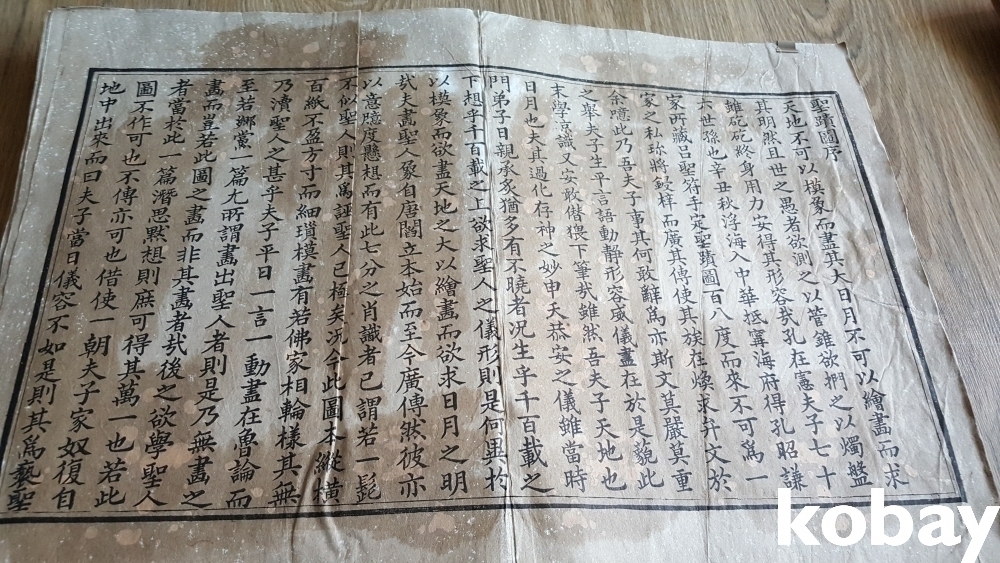 聖蹟圖序
天地不可以模象而盡其大日月不可以繪畵而求
其明然且世之愚者欲測之以管錐欲捫之以燭盤
雖矻矻終身用力安得其形容哉我孔在憲夫子七十
六世孫也辛丑秋浮海入中華抵寧海府得孔昭謙
家所藏呂聖符手定聖蹟圖百八度而來不可爲一
家之私珎將鋟梓而廣其傳使其族在煥求弁文於
余噫此乃吾夫子事其何敢辭焉亦斯文莫嚴莫重
之擧夫子生平言語動靜形容威儀盡在於是藐此
末學謏識又安敢僣猥下筆哉雖然吾夫子天地也
日月也夫其過化存神之妙申夭恭安之儀雖當時
門弟子日親承炙猶多有不曉者况生乎千百載之
下想乎千百載之上欲求聖人之儀形則是何異於
以模象而欲盡天地之大以繪畵而欲求日月之明
哉夫畵聖人象自唐閻立本始而至今廣傳然彼亦
以意度懸想而有此七分之肖識者已謂若一髭
不似聖人則其爲誣聖人已極矣况今此圖本縱橫
百紙不盈方寸而細瑣模畵有若佛家相輪樣其無
乃瀆聖人之甚乎夫子平日一言一動盡在魯論而
至若鄕黨一篇尤所謂畵出聖人者則是乃無畵之
畵而豈若此圖之畵而非其畵者哉後之欲學聖人
者當於此一篇潛思默想則庶可得其萬一也若此
圖不作可也不傳亦可也借使一朝夫子家奴復自
地中出來而曰夫子當日儀容不如是則其爲褻聖
kobay